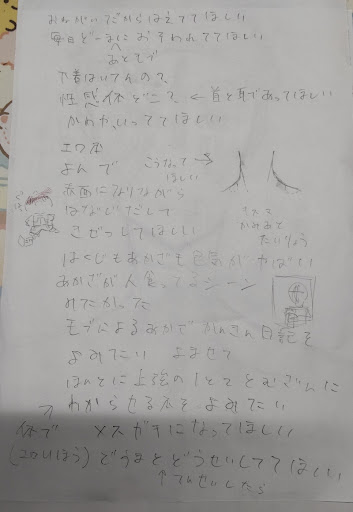 おねがいだからはえててほしい
毎日どーまにおそわれててほしい
あとで
下着はいてんので
性感体どこで ←首と耳であってほしい
かわかいっててほしい
エロ本
よんで
こうなって→
ほしい
赤面になりながら
はなぢだして
きぜつしてほしい
たいりょう
はくじもあかざも色気がやばい
あかざが人食ってるシーン
みたかった
モブによるあかざかんさつ日記を
よみたい よませて
ほんとに上弦の1と2とむざんに
わからせる本をよみたい
メスガキになってほしい
どうまとどうせいしててほしい
↑てんせいしたら